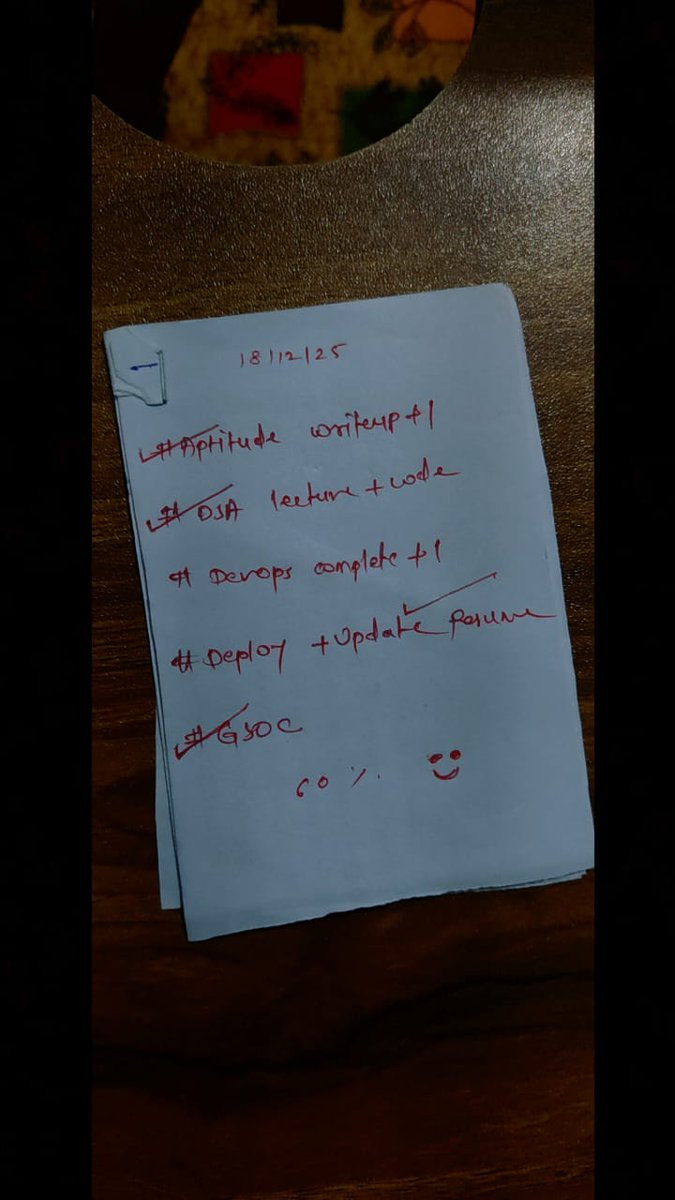 18/12/25
# Aptitude writeup +1
# DSA lecture + code
# Devops complete +1
# Deploy + Update Resume
# GSOC
60 %